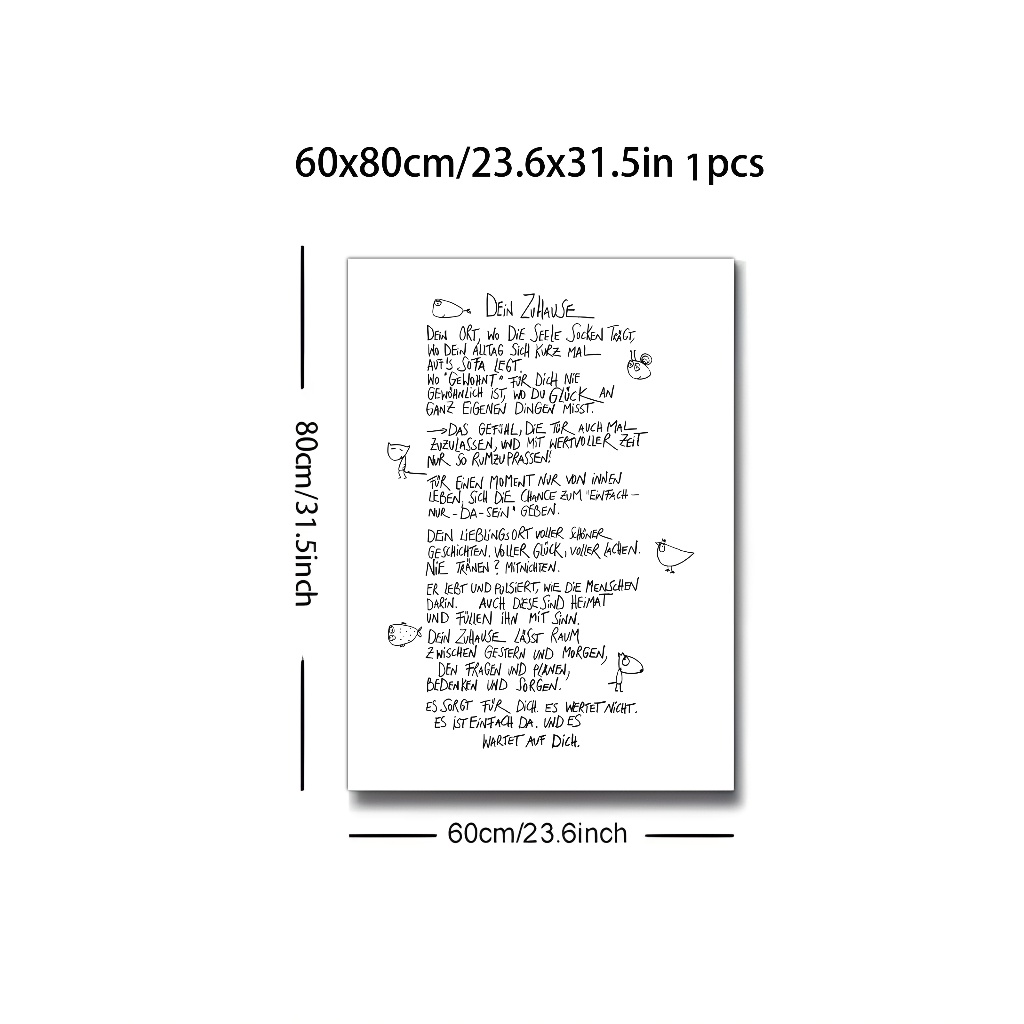 60x80cm/23.6x31.5in 1pcs
80cm/31.5inch
DEIN ZUHAUSE
DEIN ORT, WO DIE SEELE SOCKEN TRÄGT,
WO DEIN ALLTAG SICH KURZ MAL
AUF'S SOFA LEGT.
WO "GEWOHNT" FÜR DICH NIE
GEWÖHNLICH IST, WO DU GLÜCK AN
GANZ EIGENEN DINGEN MISST.
→DAS GEFÜHL, DIE TÜR AUCH MAL
ZUZULASSEN, UND MIT WERTVOLLER ZEIT
NUR SO RUMZUPRASSEN!
FÜR EINEN MOMENT NUR VON INNEN
LEBEN, SICH DIE CHANCE ZUM "EINFACH-
NUR-DA-SEIN" GEBEN.
DEIN LIEBLINGSORT VOLLER SCHÖNER
GESCHICHTEN, VOLLER GLÜCK, VOLLER LACHEN.
NIE TRÄNEN? MITNICHTEN.
ER LEBT UND PULSIERT, WIE DIE MENSCHEN
DARIN. AUCH DIESE SIND HEIMAT
UND FÜLLEN IHN MIT SINN.
DEIN ZUHAUSE LÄSST RAUM
ZWISCHEN GESTERN UND MORGEN,
DEN FRAGEN UND PLÄNEN,
BEDENKEN UND SORGEN.
ES SORGT FÜR DICH. ES WERTET NICHT.
ES IST EINFACH DA. UND ES
WARTET AUF DICH.
60cm/23.6inch